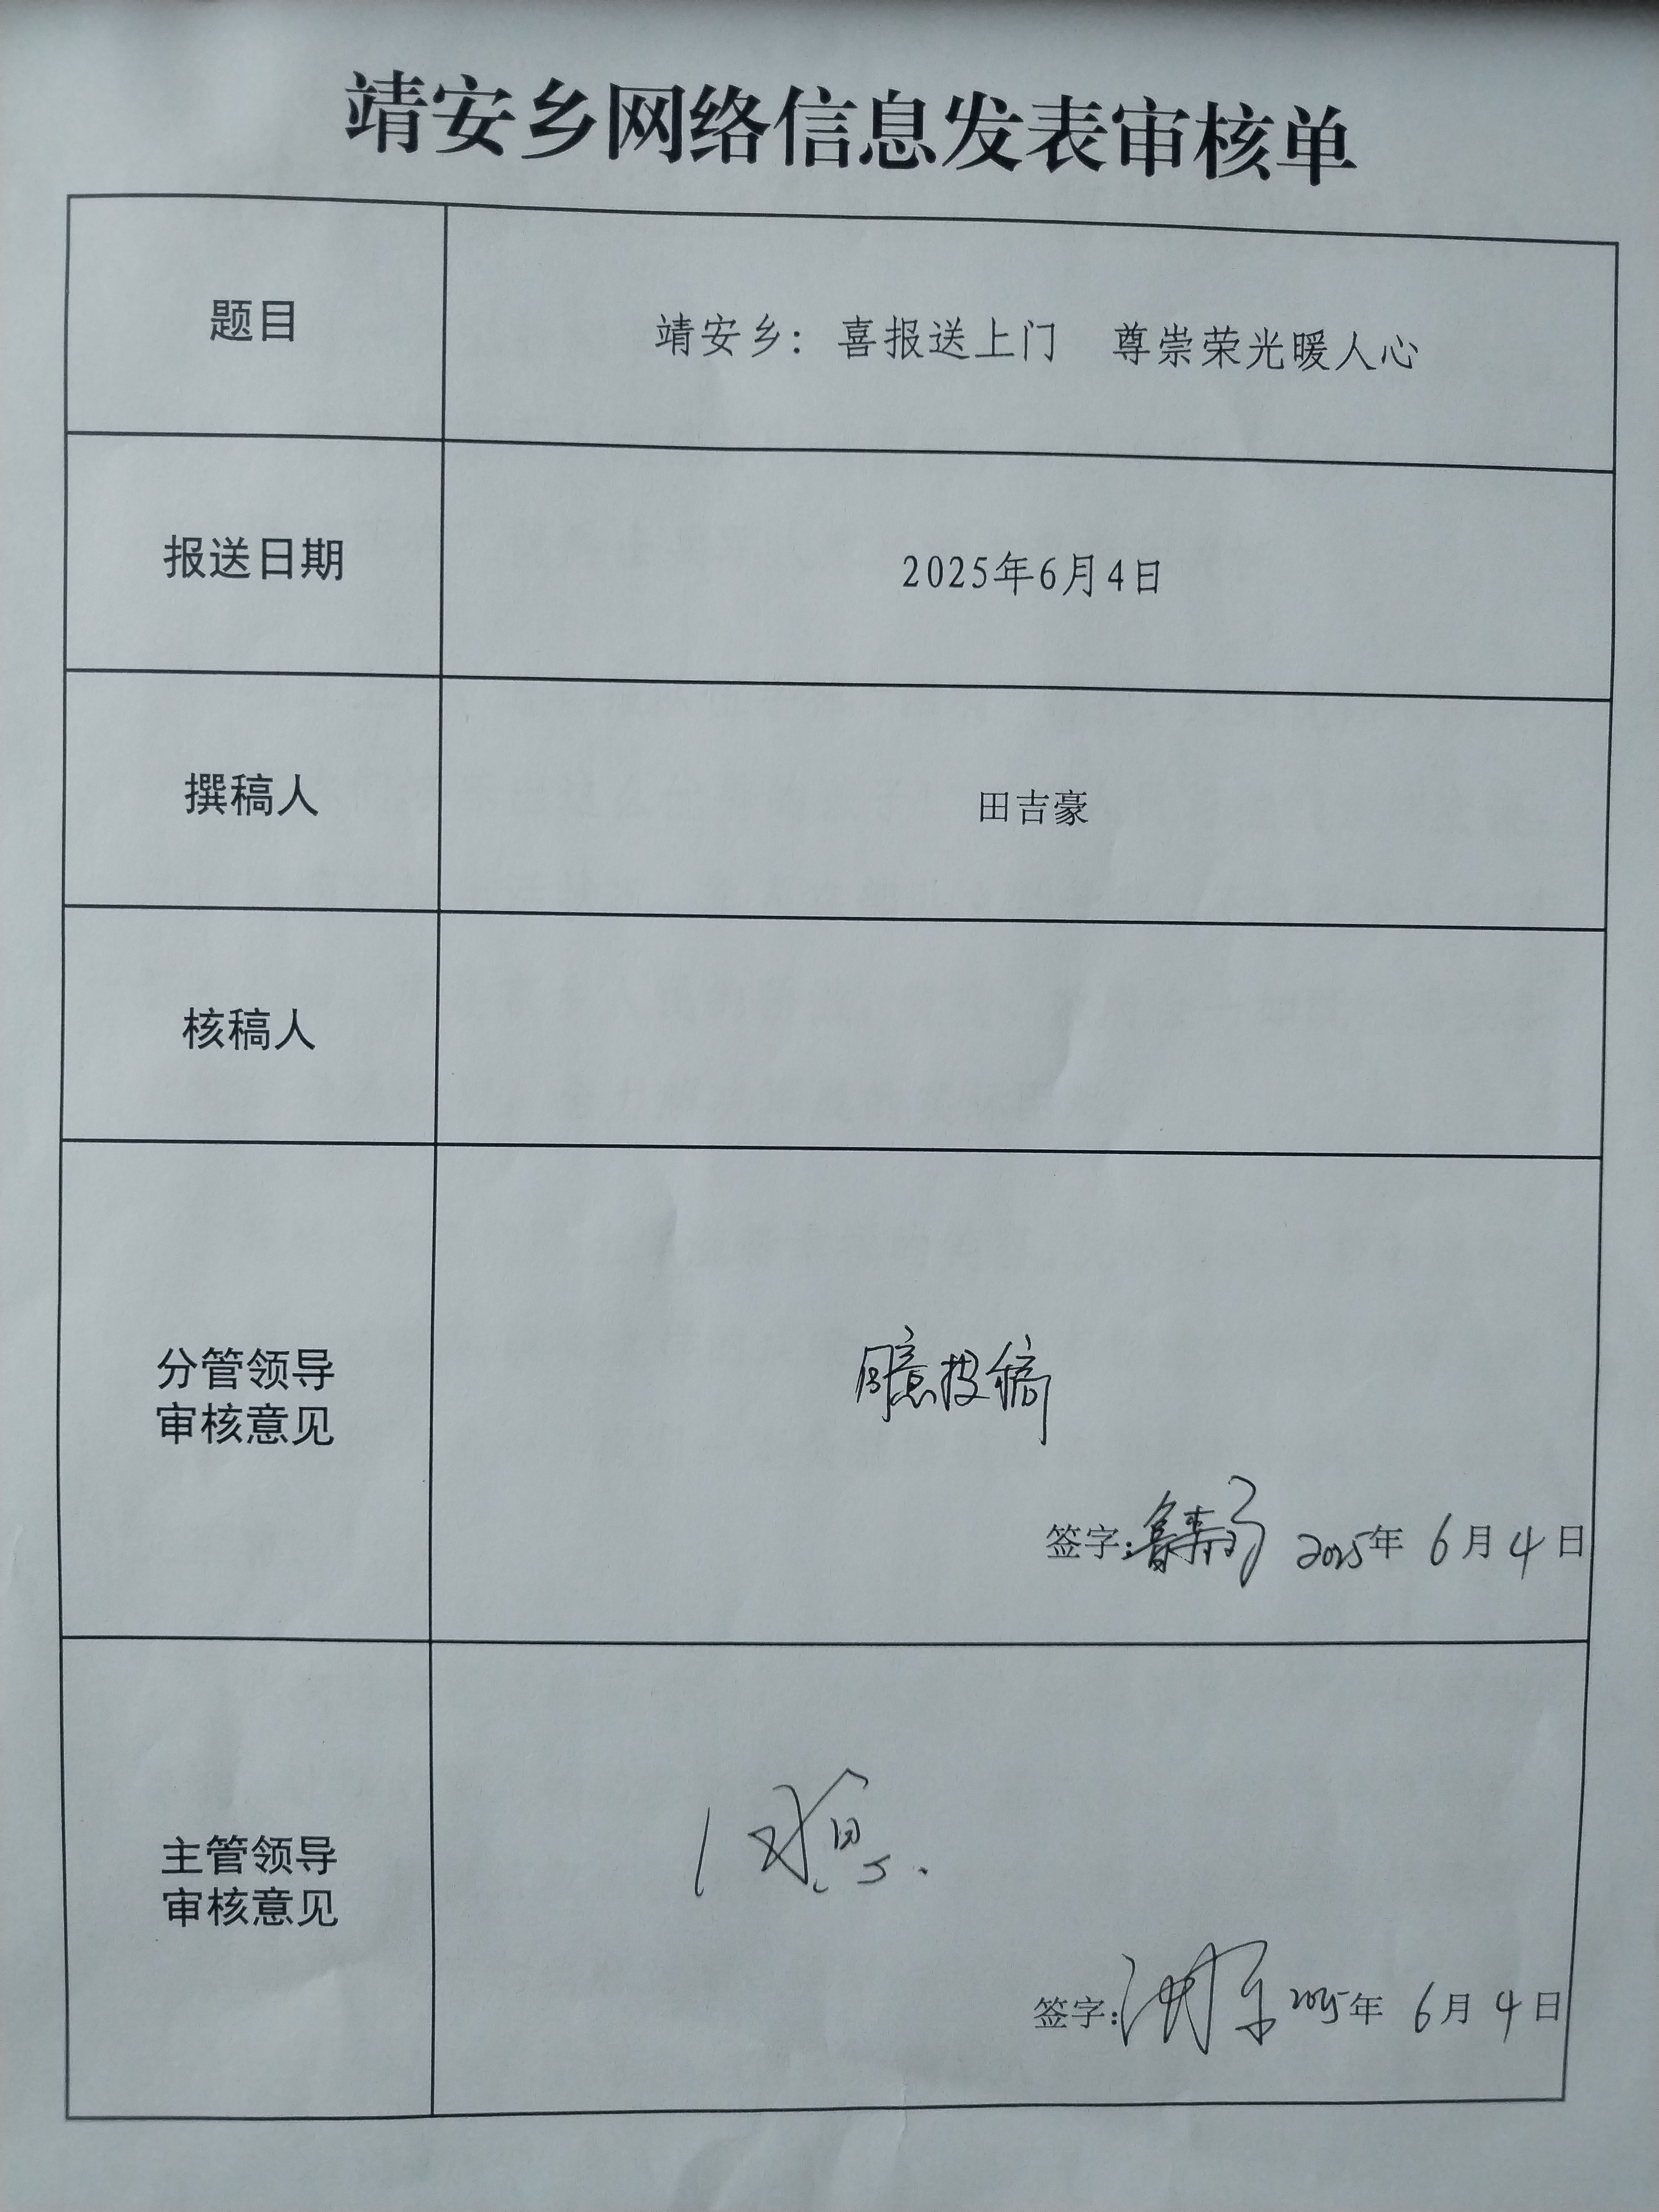 靖安乡网络信息发表审核单
题目
靖安乡：喜报送上门 尊崇荣光暖人心
报送日期
2025年6月4日
撰稿人
田吉豪
核稿人
分管领导
审核意见
同意投稿
签字： 2025年 6月4日
主管领导
审核意见
同意.
签字： 2025年 6月4日